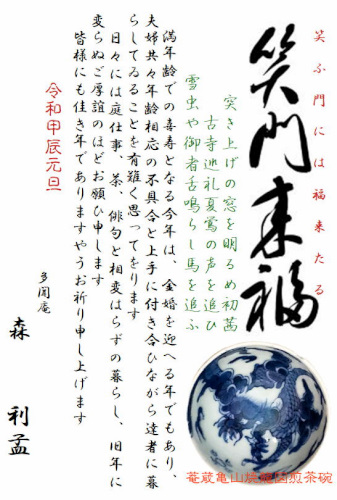 笑ふ門には福来たる
笑門来福
突き上げの窓を明るめ初茜
古寺巡礼夏鶯の声を追ひ
雪虫や御者舌鳴らし馬を追ふ
満年齢での喜寿となる今年は、金婚を迎へる年でもあり、
夫婦共々年齢相応の不具合と上手に付き合ひながら達者に暮
らしてゐることを有難く思ってをります
日々には庭仕事、茶、俳句と相変はらずの暮らし、旧年に
変らぬご厚誼のほどお願ひ申します
皆様にも佳き年でありますやうお祈り申し上げます
令和甲辰元旦
多聞庵
森 利孟
菴蔵亀山焼龍図煎茶碗